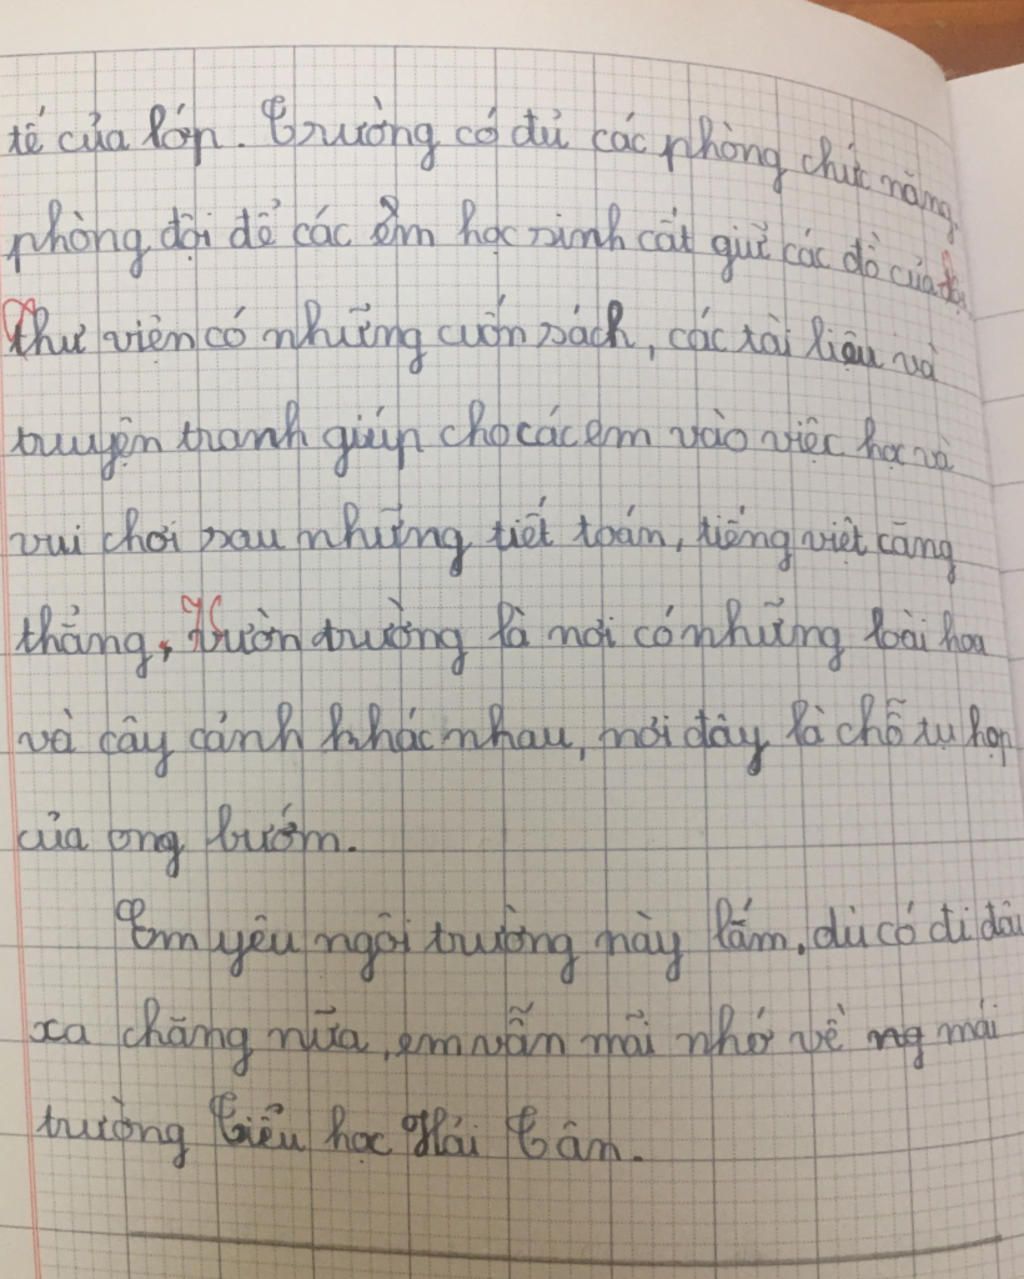 tế của lớp. Trường có đủ các phòng chức năng,
phòng đội để các em học sinh cất giữ các đồ của đội
Thư viện có những cuốn sách, các tài liệu và
truyện tranh giúp cho các em vào việc học và
vui chơi sau những tiết toán, tiếng việt căng
thẳng, Vườn trường là nơi có những loài hoa
và cây cảnh khác nhau, nơi đây là chỗ tụ họp
của ong bướm.
Em yêu ngôi trường này lắm, dù có đi đâu
xa chăng nữa, em vẫn mãi nhớ về mái
trường Tiểu học Hải Tân.